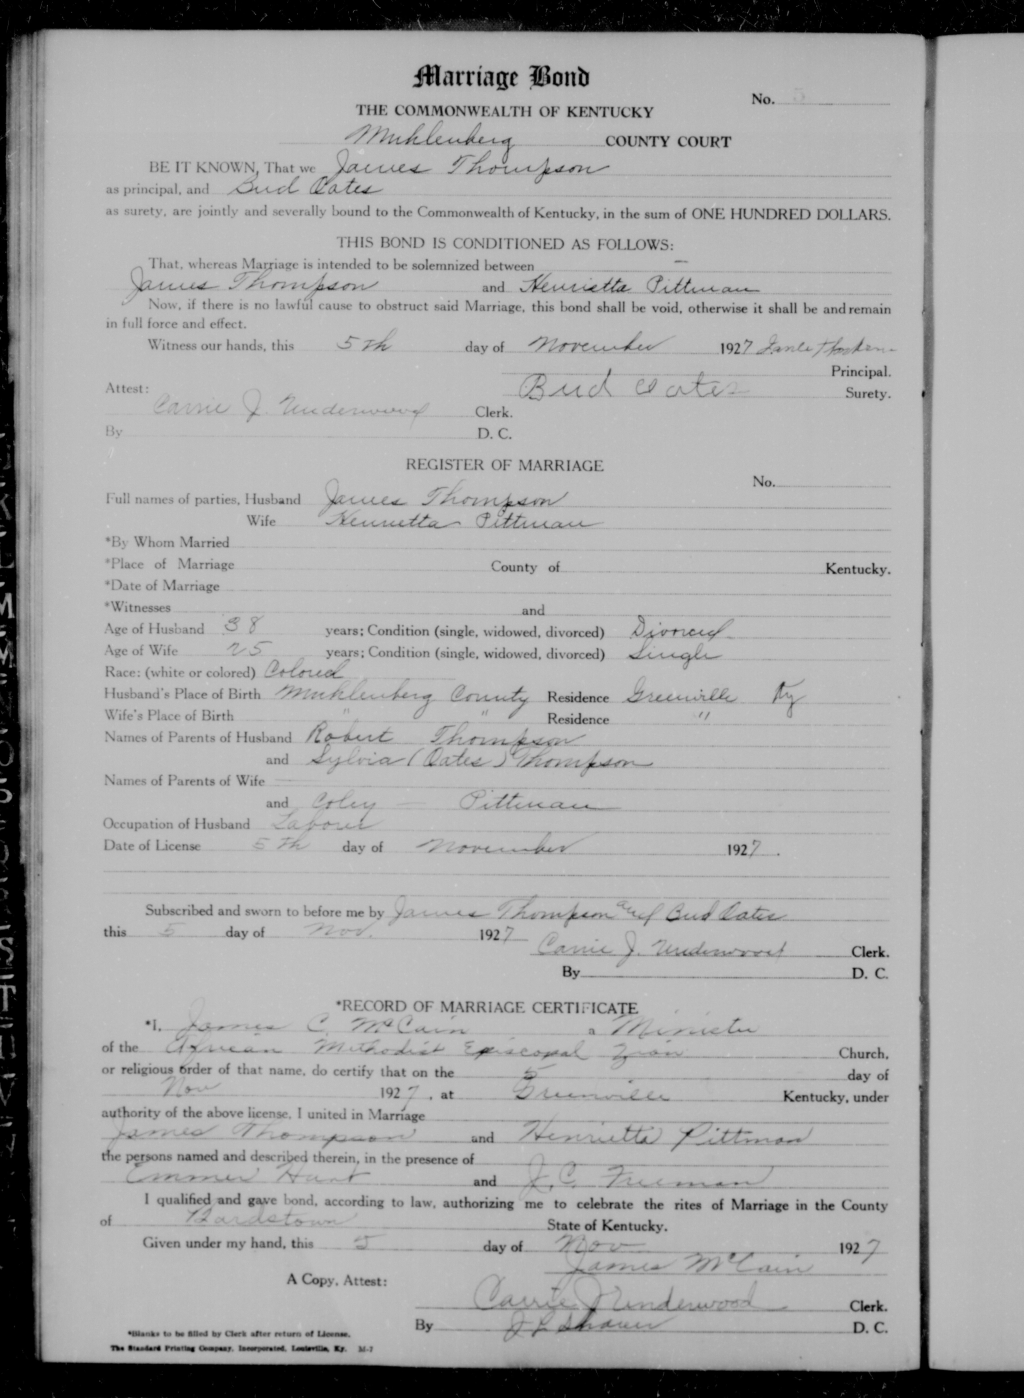 Marriage Bond
No. 5
THE COMMONWEALTH OF KENTUCKY
Muhlenberg COUNTY COURT
BE IT KNOWN, That we James Thompson
as principal, and Bud Oates
as surety, are jointly and severally bound to the Commonwealth of Kentucky, in the sum of ONE HUNDRED DOLLARS.
THIS BOND IS CONDITIONED AS FOLLOWS:
That, whereas Marriage is intended to be solemnized between
James Thompson and Henrietta Pittman
Now, if there is no lawful cause to obstruct said Marriage, this bond shall be void, otherwise it shall be and remain
in full force and effect.
Witness our hands, this 5th day of November 1927
Principal.
Bud Oates Surety.
Attest:
Carrie J. Underwood Clerk.
By D. C.
REGISTER OF MARRIAGE
No.
Full names of parties, Husband James Thompson
Wife Henrietta Pittman
*By Whom Married
*Place of Marriage County of Kentucky.
*Date of Marriage
*Witnesses and
Age of Husband 38 years; Condition (single, widowed, divorced) Divorced
Age of Wife 25 years; Condition (single, widowed, divorced) Single
Race: (white or colored) Colored
Husband's Place of Birth Muhlenberg County Residence Greenville Ky
Wife's Place of Birth " " Residence "
Names of Parents of Husband Robert Thompson
and Sylvia (Oates) Thompson
Names of Parents of Wife
and Coley — Pittman
Occupation of Husband Laborer
Date of License 5th day of November 1927.
Subscribed and sworn to before me by James Thompson and Bud Oates
this 5 day of Nov. 1927
Carrie J. Underwood Clerk.
By D. C.
*RECORD OF MARRIAGE CERTIFICATE
*I, James C. McCain a Minister
of the African Methodist Episcopal Zion Church,
or religious order of that name, do certify that on the 5 day of
Nov 1927, at Greenville Kentucky, under
authority of the above license, I united in Marriage
James Thompson and Henrietta Pittman
the persons named and described therein, in the presence of
Emmer Hunt and J. C. Freeman
I qualified and gave bond, according to law, authorizing me to celebrate the rites of Marriage in the County
of Bardstown State of Kentucky.
Given under my hand, this 5 day of Nov 1927
James McCain
A Copy, Attest:
Carrie J Underwood Clerk.
By D. C.
*Blanks to be filled by Clerk after return of License.
The Standard Printing Company, Incorporated, Louisville, Ky. M-7